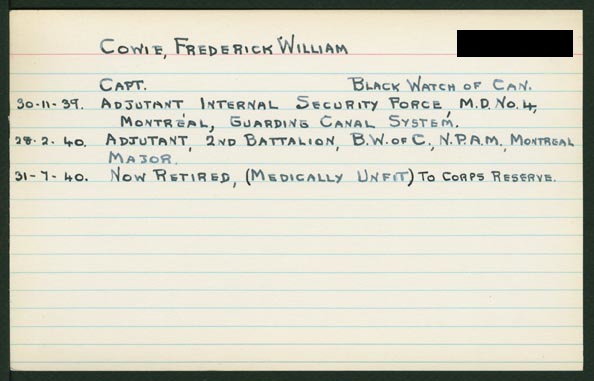 COWIE, FREDERICK WILLIAM
CAPT. BLACK WATCH OF CAN.
30-11-39. ADJUTANT INTERNAL SECURITY FORCE, M.D. NO. 4,
MONTREAL, GUARDING CANAL SYSTEM.
28-2-40. ADJUTANT, 2ND BATTALION, B.W. OF C., N.P.A.M., MONTREAL
MAJOR.
31-7-40. NOW RETIRED, (MEDICALLY UNFIT) TO CORPS RESERVE.